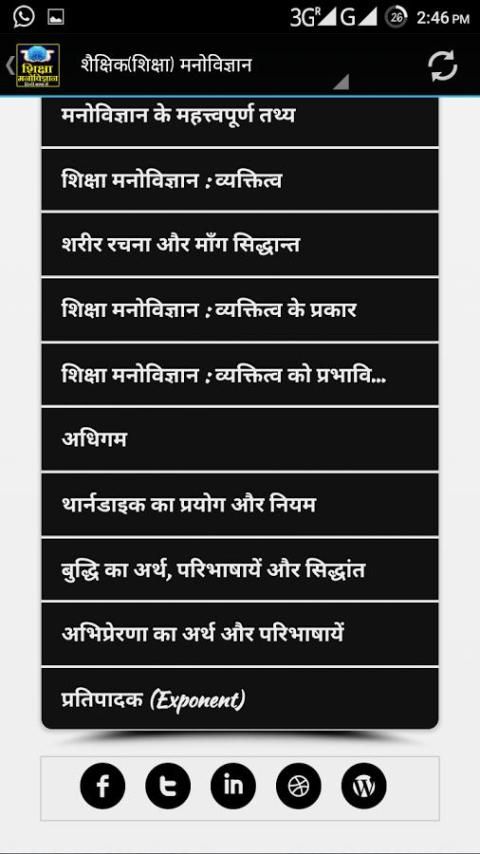 3G R G 26 2:46 PM
शिक्षा
मनोविज्ञान
शैक्षिक(शिक्षा) मनोविज्ञान
मनोविज्ञान के महत्त्वपूर्ण तथ्य
शिक्षा मनोविज्ञान : व्यक्तित्व
शरीर रचना और माँग सिद्धान्त
शिक्षा मनोविज्ञान : व्यक्तित्व के प्रकार
शिक्षा मनोविज्ञान : व्यक्तित्व को प्रभावि...
अधिगम
थार्नडाइक का प्रयोग और नियम
बुद्धि का अर्थ, परिभाषायें और सिद्धांत
अभिप्रेरणा का अर्थ और परिभाषायें
प्रतिपादक (Exponent)